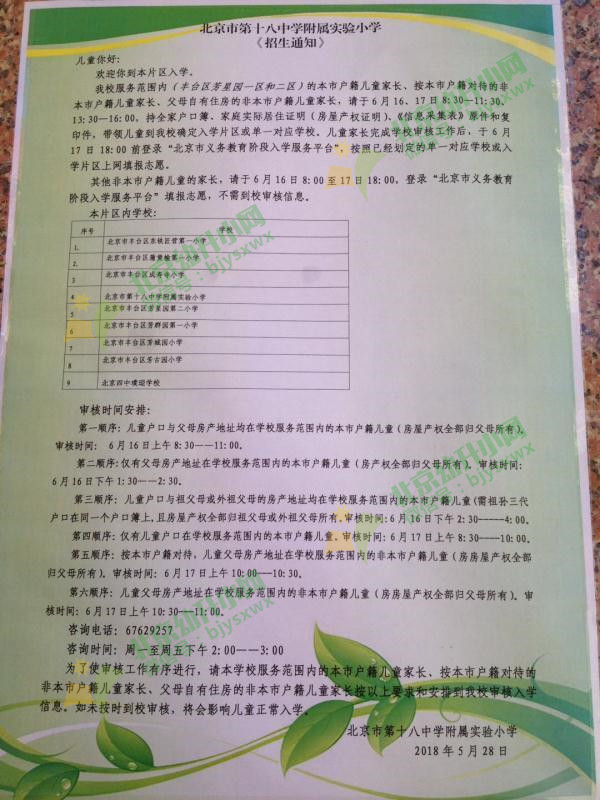 北京市第十八中学附属实验小学
《招生通知》
儿童你好：
欢迎你到本片区入学。
我校服务范围内（丰台区芳星园一区和二区）的本市户籍儿童家长、按本市户籍对待的非
本市户籍儿童家长、父母自有住房的非本市户籍儿童家长，请于6月16、17日8:30—11:30、
13:30—16:00，持全家户口簿、家庭实际居住证明（房屋产权证明）、《信息采集表》原件和复
印件，带领儿童到我校确定入学片区或单一对应学校。儿童家长完成学校审核工作后，于6月
17日18:00前登录“北京市义务教育阶段入学服务平台”，按照已经划定的单一对应学校或入
学片区上网填报志愿。
其他非本市户籍儿童的家长，请于6月16日8:00至17日18:00，登录“北京市义务教育
阶段入学服务平台”填报志愿，不需到校审核信息。
本片区内学校：
序号 学校
1. 北京市丰台区东铁匠营第一小学
2. 北京市丰台区蒲黄榆第一小学
3. 北京市丰台区成寿寺小学
4 北京市第十八中学附属实验小学
5 北京市丰台区芳星园第二小学
6 北京市丰台区芳群园第一小学
7 北京市丰台区芳城园小学
8 北京市丰台区芳古园小学
9 北京四中璞瑅学校
审核时间安排：
第一顺序：儿童户口与父母房产地址均在学校服务范围内的本市户籍儿童（房屋产权全部归父母所有）。
审核时间：6月16日上午8:30——11:00。
第二顺序：仅有父母房产地址在学校服务范围内的本市户籍儿童（房产权全部归父母所有）。审核时间：
6月16日下午1:30——2:30。
第三顺序：儿童户口与祖父母或外祖父母的房产地址均在学校服务范围内的本市户籍儿童(需祖孙三代
户口在同一个户口簿上,且房屋产权全部归祖父母或外祖父母所有。审核时间:6月16日下午2:30-----4:00。
第四顺序：仅有儿童户口在学校服务范围内的本市户籍儿童。审核时间：6月17日上午8:30——10:00
第五顺序：按本市户籍对待，儿童父母房产地址在学校服务范围内的非本市户籍儿童（房房屋产权全部
归父母所有）。审核时间：6月17日上午10:00---10:30。
第六顺序：儿童父母房产地址在学校服务范围内的非本市户籍儿童（房房屋产权全部归父母所有）。审
核时间：6月17日上午10:30—11:00。
咨询电话：67629257
咨询时间：周一至周五下午2:00——3:00
为了使审核工作有序进行，请本学校服务范围内的本市户籍儿童家长、按本市户籍对待的
非本市户籍儿童家长、父母自有住房的非本市户籍儿童家长按以上要求和安排到我校审核入学
信息。如未按时到校审核，将会影响儿童正常入学。
北京市第十八中学附属实验小学
2018年5月28日
北京幼升小网
bjysxwx
北京幼升小网
bjysxwx
北京幼升小网
bjysxwx